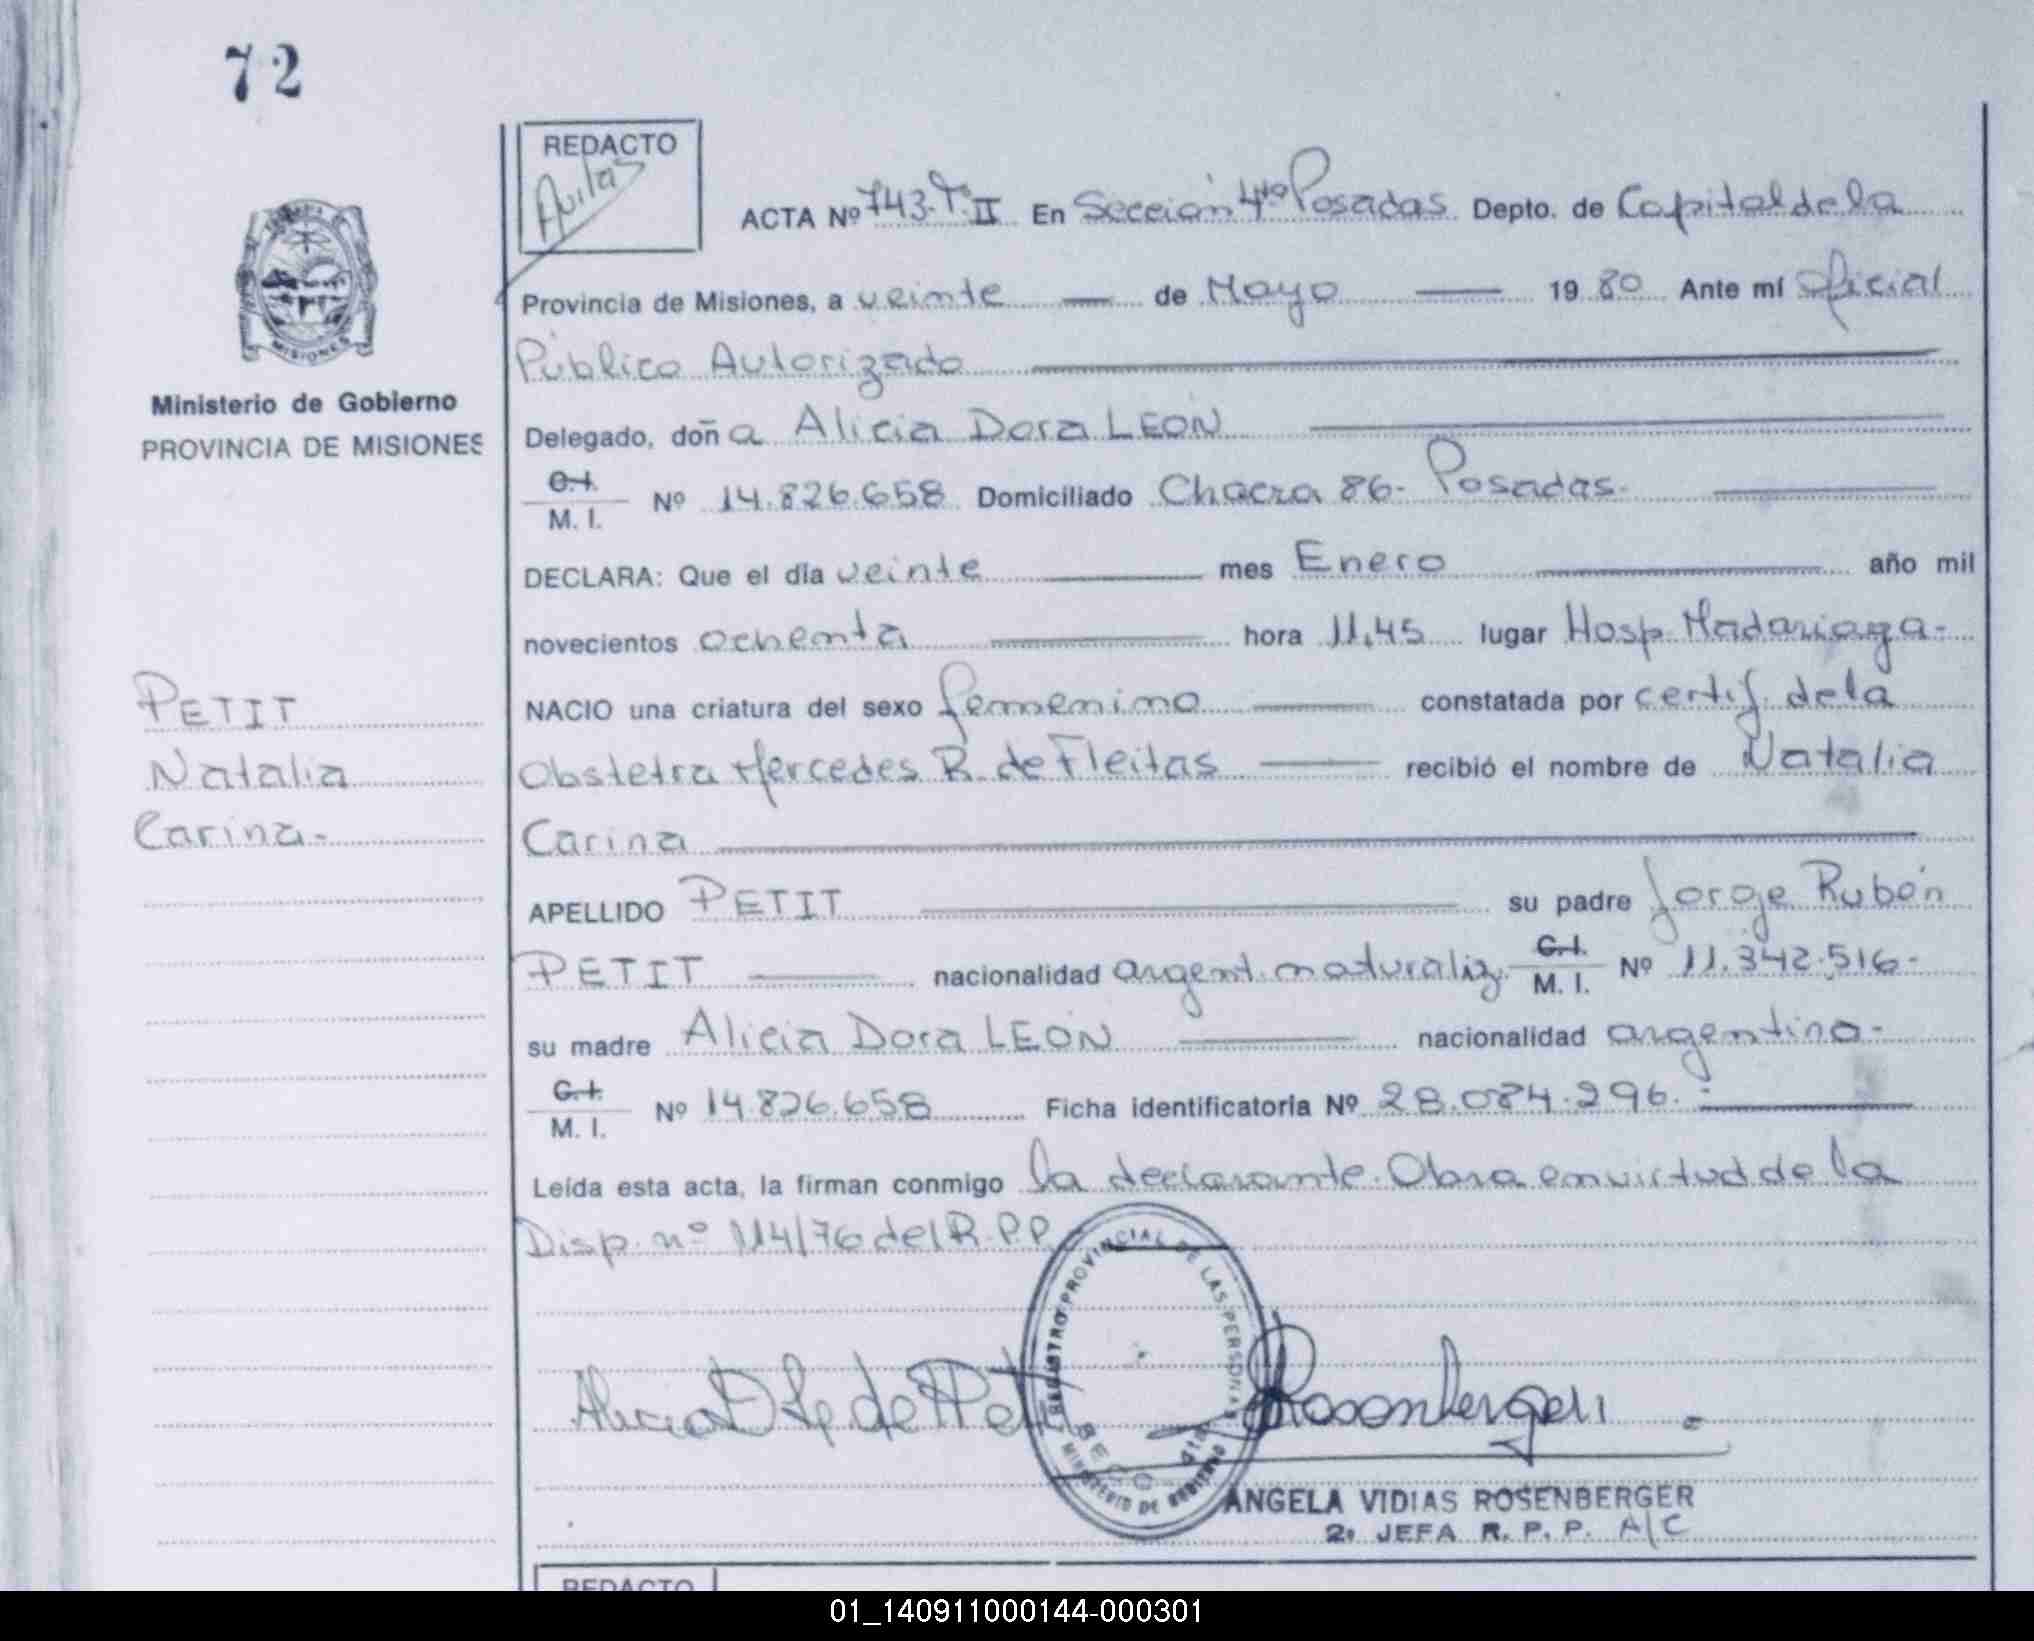 72
REDACTO
Avilas
ACTA Nº 743.Tº.II En Sección 4ta Posadas Depto. de Capital de la
MISIONES
Provincia de Misiones, a veinte de Mayo 19 80 Ante mí Oficial
Público Autorizado
Ministerio de Gobierno
PROVINCIA DE MISIONES
Delegado, doña Alicia Dora LEON
C.I.
M. I. Nº 14.826.658 Domiciliado Chacra 86- Posadas-
DECLARA: Que el día veinte mes Enero año mil
novecientos ochenta hora 11,45 lugar Hosp. Madariaga-
PETIT
Natalia
Carina-
NACIO una criatura del sexo femenino constatada por certif. de la
Obstetra Mercedes R. de Fleitas recibió el nombre de Natalia
Carina
APELLIDO PETIT su padre Jorge Rubén
PETIT nacionalidad argent. naturaliz. C.I. M. I. Nº 11.342.516-
su madre Alicia Dora LEON nacionalidad argentina-
C.I.
M. I. Nº 14.826.658 Ficha identificatoria Nº 28.084.296.-
Leída esta acta, la firman conmigo la declarante. Obra en virtud de la
Disp. nº 114/76 del R.P.P.
REGISTRO PROVINCIAL DE LAS PERSONAS
SECC 4ta
MINISTERIO DE GOBIERNO
Rosenberger
ANGELA VIDIAS ROSENBERGER
2º JEFA R. P. P. A/C
REDACTO
01_140911000144-000301